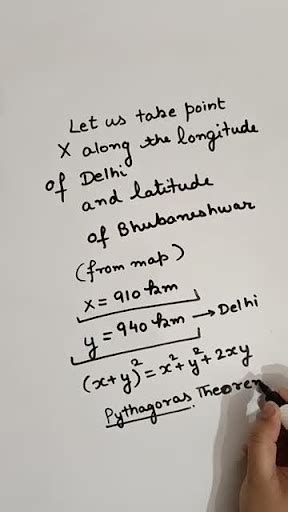 Let us take point
X along the longitude
of Delhi
and latitude
of Bhubaneshwar
(from map)
x = 910 km
y = 940 km → Delhi
(x+y)² = x² + y² + 2xy
Pythagoras Theorem